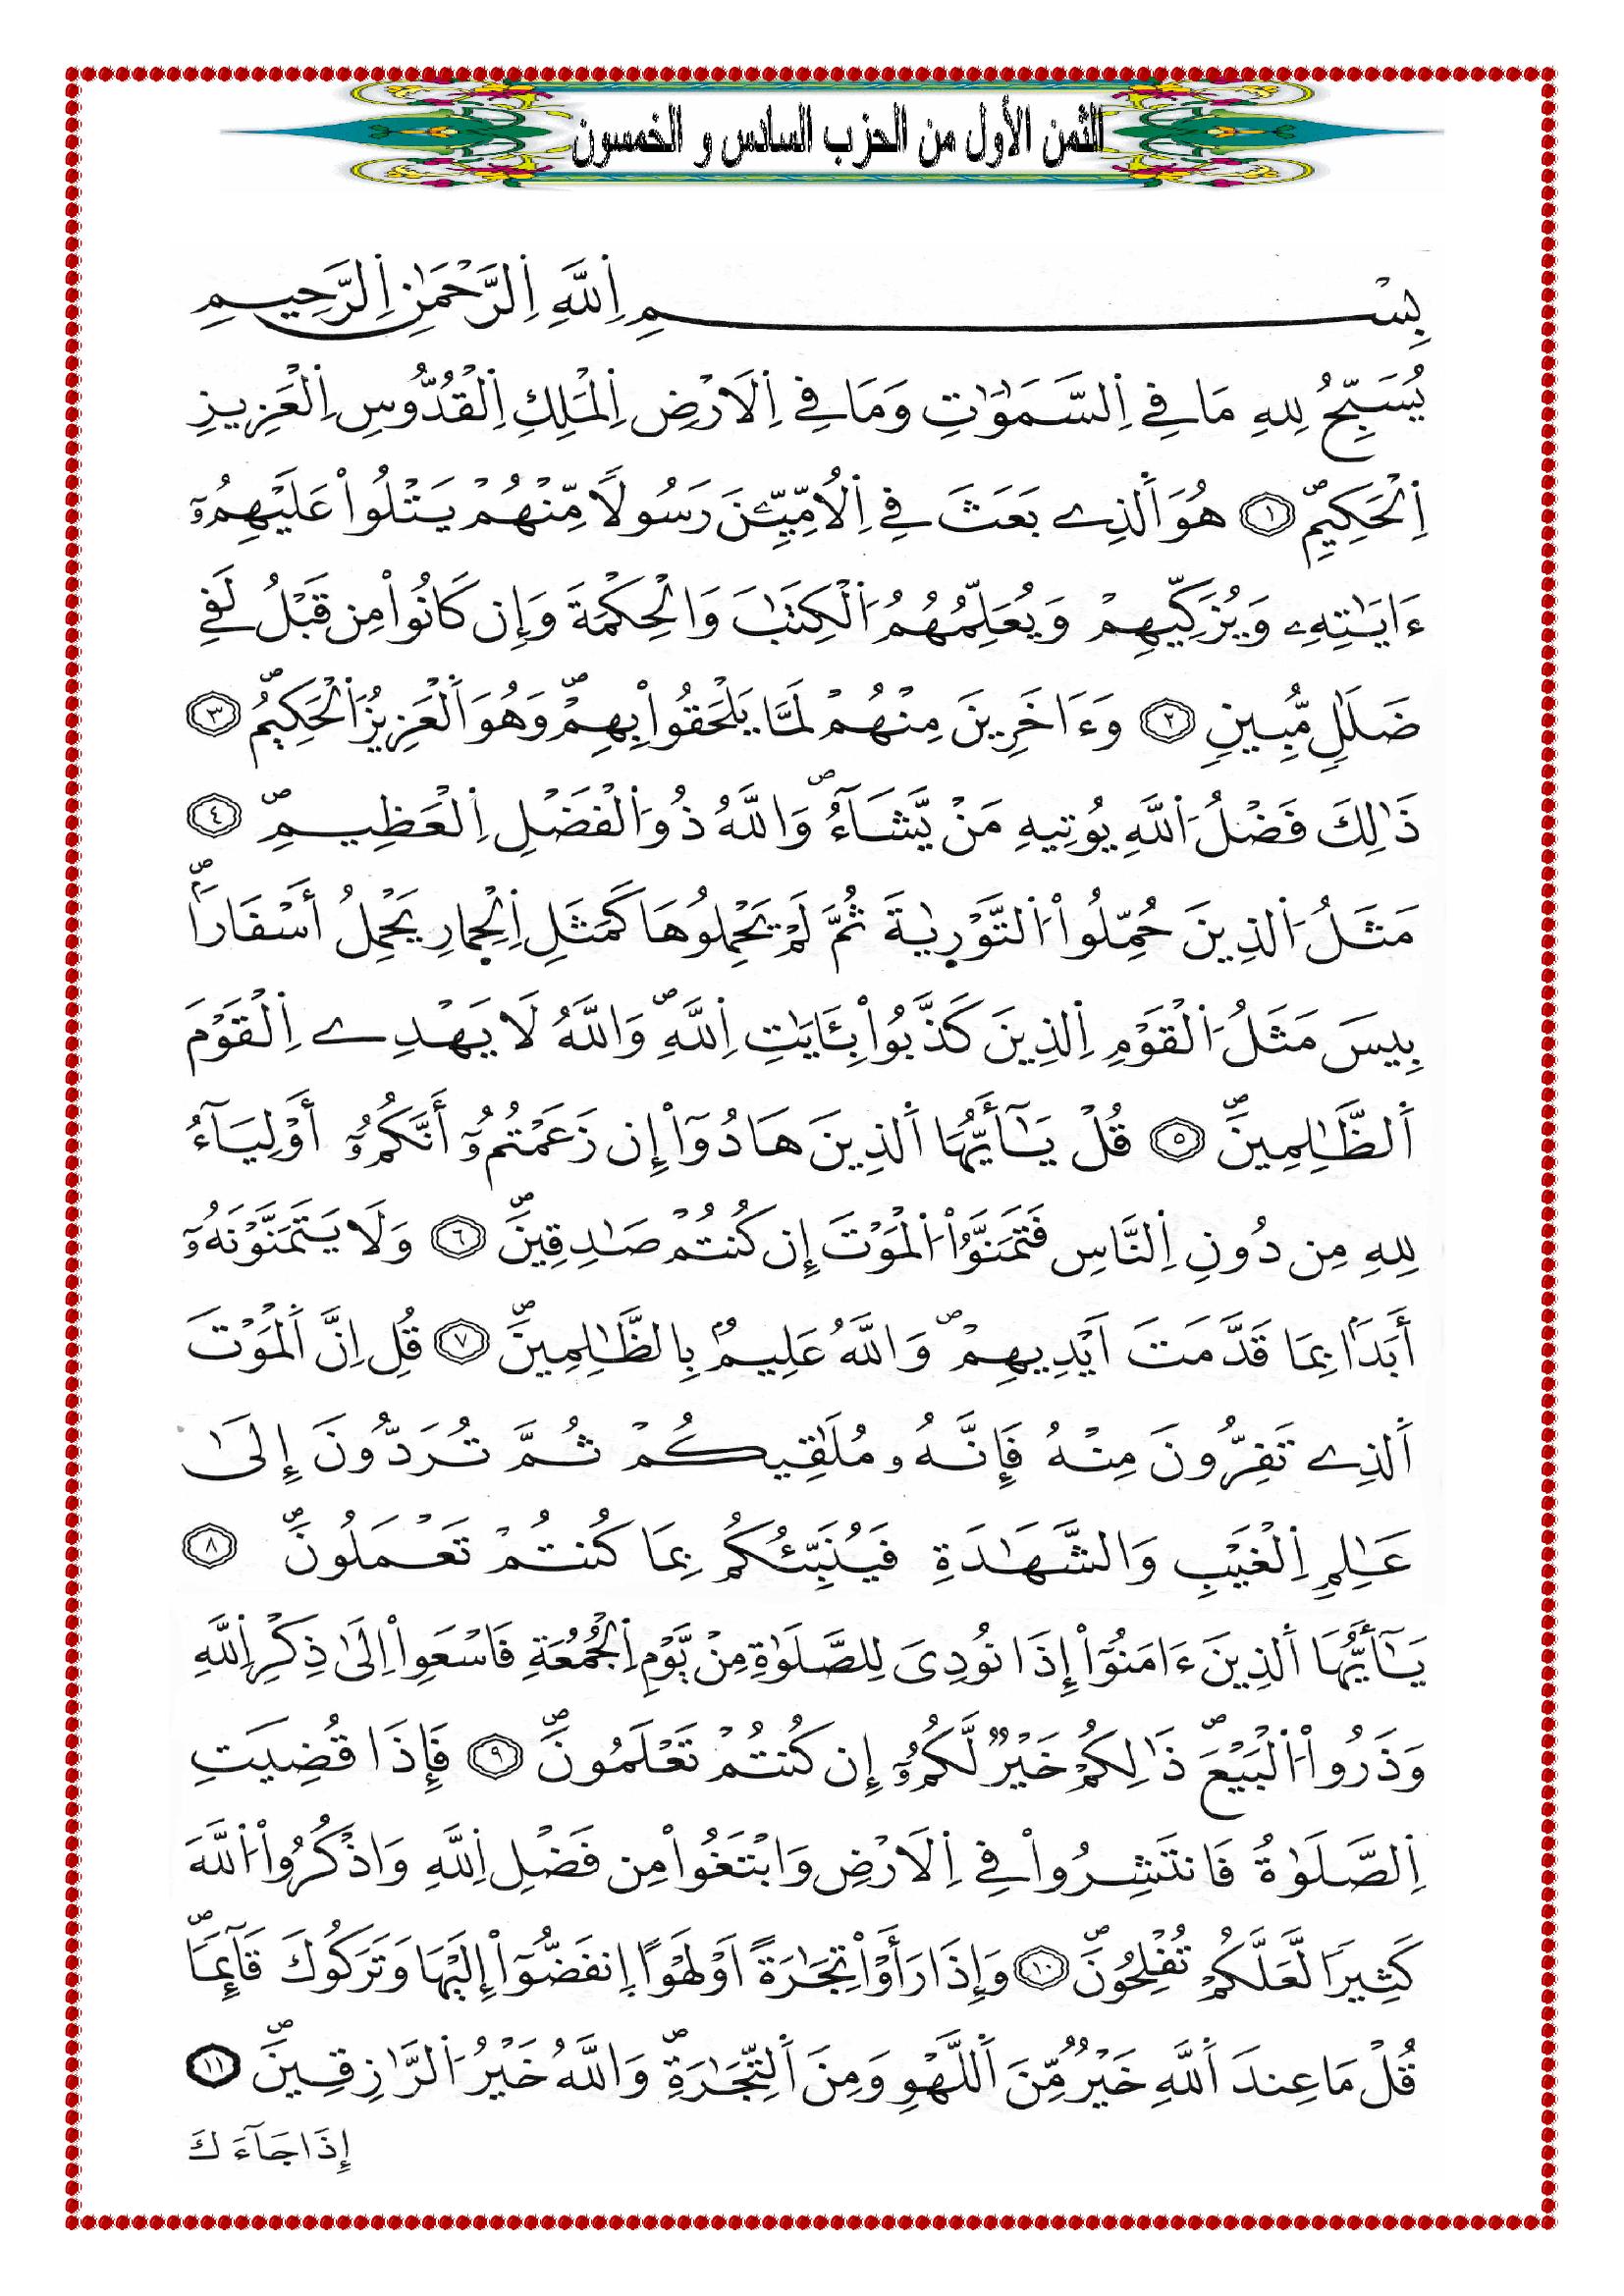 الثمن الأول من الحزب السادس و الخمسون
بِسْمِ اِ۬للَّهِ اِ۬لرَّحْمَٰنِ اِ۬لرَّحِيمِ
يُسَبِّحُ لِلهِ مَا فِے اِ۬لسَّمَٰوَٰتِ وَمَا فِے اِ۬لَارْضِ اِ۬لْمَلِكِ اِ۬لْقُدُّوسِ اِ۬لْعَزِيزِ
اِ۬لْحَكِيمِۖ ١ هُوَ اَ۬لذِے بَعَثَ فِے اِ۬لُامِّيِّـۧنَ رَسُولاٗ مِّنْهُمْ يَتْلُواْ عَلَيْهِمُۥٓ
ءَايَٰتِهِۦ وَيُزَكِّيهِمْ وَيُعَلِّمُهُمُ اُ۬لْكِتَٰبَ وَالْحِكْمَةَ وَإِن كَانُواْ مِن قَبْلُ لَفِے
ضَلَٰلٖ مُّبِينٖ ٢ وَءَاخَرِينَ مِنْهُمْ لَمَّا يَلْحَقُواْ بِهِمْۖ وَهُوَ اَ۬لْعَزِيزُ اُ۬لْحَكِيمُۖ ٣
ذَٰلِكَ فَضْلُ اُ۬للَّهِ يُوتِيهِ مَنْ يَّشَآءُۖ وَاللَّهُ ذُو اُ۬لْفَضْلِ اِ۬لْعَظِيمِۖ ٤
مَثَلُ اُ۬لذِينَ حُمِّلُواْ اُ۬لتَّوْرٜيٰةَ ثُمَّ لَمْ يَحْمِلُوهَا كَمَثَلِ اِ۬لْحِمٜارِ يَحْمِلُ أَسْفَاراَۢۖ
بِيسَ مَثَلُ اُ۬لْقَوْمِ اِ۬لذِينَ كَذَّبُواْ بِـَٔايَٰتِ اِ۬للَّهِۖ وَاللَّهُ لَا يَهْدِے اِ۬لْقَوْمَ
اَ۬لظَّٰلِمِينَۖ ٥ قُلْ يَٰٓأَيُّهَا اَ۬لذِينَ هَادُوٓاْ إِن زَعَمْتُمُۥٓ أَنَّكُمُۥٓ أَوْلِيَآءُ
لِلهِ مِن دُونِ اِ۬لنَّاسِ فَتَمَنَّوُاْ اُ۬لْمَوْتَ إِن كُنتُمْ صَٰدِقِينَۖ ٦ وَلَا يَتَمَنَّوْنَهُۥٓ
أَبَداَۢ بِمَا قَدَّمَتَ اَيْدِيهِمْۖ وَاللَّهُ عَلِيمُۢ بِالظَّٰلِمِينَۖ ٧ قُلِ اِنَّ اَ۬لْمَوْتَ
اَ۬لذِے تَفِرُّونَ مِنْهُ فَإِنَّهُۥ مُلَٰقِيكُمْ ثُمَّ تُرَدُّونَ إِلَىٰ
عَٰلِمِ اِ۬لْغَيْبِ وَالشَّهَٰدَةِ فَيُنَبِّئُكُم بِمَا كُنتُمْ تَعْمَلُونَۖ ٨
يَٰٓأَيُّهَا اَ۬لذِينَ ءَامَنُوٓاْ إِذَا نُودِىَ لِلصَّلَوٰةِ مِنْ يَّوْمِ اِ۬لْجُمُعَةِ فَاسْعَواِ اِلَىٰ ذِكْرِ اِ۬للَّهِ
وَذَرُواْ اُ۬لْبَيْعَۖ ذَٰلِكُمْ خَيْرٞ لَّكُمُۥٓ إِن كُنتُمْ تَعْلَمُونَۖ ٩ فَإِذَا قُضِيَتِ
اِ۬لصَّلَوٰةُ فَانتَشِرُواْ فِے اِ۬لَارْضِ وَابْتَغُواْ مِن فَضْلِ اِ۬للَّهِ وَاذْكُرُواْ اُ۬للَّهَ
كَثِيراٗ لَّعَلَّكُمْ تُفْلِحُونَۖ ١٠ وَإِذَا رَأَوْاْ تِجَٰرَةً اَوْ لَهْواً اِ۪نفَضُّوٓاْ إِلَيْهَا وَتَرَكُوكَ قَآئِماٗۖ
قُلْ مَا عِندَ اَ۬للَّهِ خَيْرٞ مِّنَ اَ۬للَّهْوِ وَمِنَ اَ۬لتِّجَٰرَةِۖ وَاللَّهُ خَيْرُ اُ۬لرَّٰزِقِينَۖ ١١
إِذَا جَآءَكَ